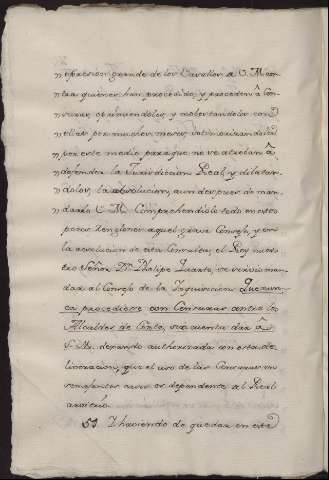 presion grande de los Vasallos a V. M. con-
tra quienes han procedido, y proceden â Con-
suras oprimiendolos, y molestandolos con
ellas por muchos meses, atimorizandolos
por este medio para que no se atrevan â
defender la Jurisdiccion Real, y dilatan-
doles la absolucion, aun despues de man-
darlo V. M. Comprehendiòlo todo en estos
pocos renglones aquel grave Consejo, y en
la resolucion de esta Consulta, el Rey nues-
tro Señor Dn. Phelipe Quarto, se sirviò man-
dar al Consejo de la Inquisicion Que nun-
ca procediese con Censuras contra los
Alcaldes de Corte, sin cuenta dar â
S. M. dexando authorizada con esta de-
liveracion, que el uso de las Censuras en
semejantes casos es dependente al Real
arvitrio.
51. Y haviendo de quedar en este